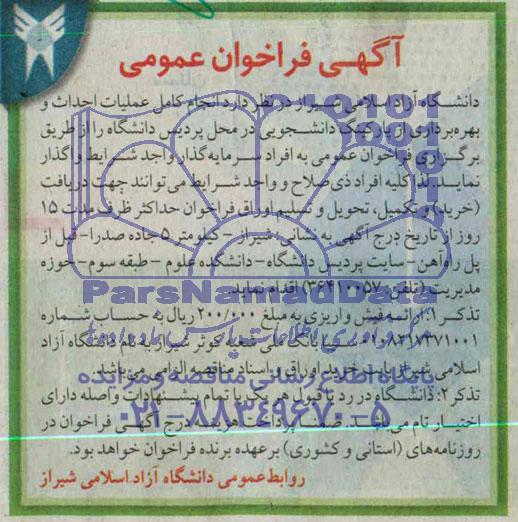 آگهی فراخوان عمومی
دانشگاه آزاد اسلامی شیراز در نظر دارد انجام کامل عملیات احداث و
بهره‌برداری از پارکینگ دانشجویی در محل پردیس دانشگاه را از طریق
برگزاری فراخوان عمومی به افراد سرمایه‌گذار واجد شرایط واگذار
نماید. لذا کلیه افراد ذی‌صلاح و واجد شرایط می‌توانند جهت دریافت
(خرید) و تکمیل، تحویل و تسلیم اوراق فراخوان حداکثر ظرف مدت ۱۵
روز از تاریخ درج آگهی به نشانی: شیراز - کیلومتر ۵ جاده صدرا- قبل از
پل راه‌آهن - سایت پردیس دانشگاه- دانشکده علوم - طبقه سوم- حوزه
مدیریت (تلفن: ۳۶۴۱۰۰۵۷) اقدام نماید.
ParsNamadData
تذکر ۱: ارائه فیش واریزی به مبلغ ۲۰۰/۰۰۰ ریال به حساب شماره
بانک ملی شعبه کوثر شیراز به نام دانشگاه آزاد
اسلامی شیراز بابت خرید اوراق و اسناد مناقصه الزامی می‌باشد.
پایگاه اطلاع رسانی مناقصه و مزایده
تذکر ۲: دانشگاه در رد یا قبول هر یک یا تمام پیشنهادات واصله دارای
۰۲۱-۸۸۳۴۹۶۷۰-۵
اختیار تام می‌باشد. ضمناً پرداخت هزینه درج آگهی فراخوان در
روزنامه‌های (استانی و کشوری) بر عهده برنده فراخوان خواهد بود.
روابط عمومی دانشگاه آزاد اسلامی شیراز